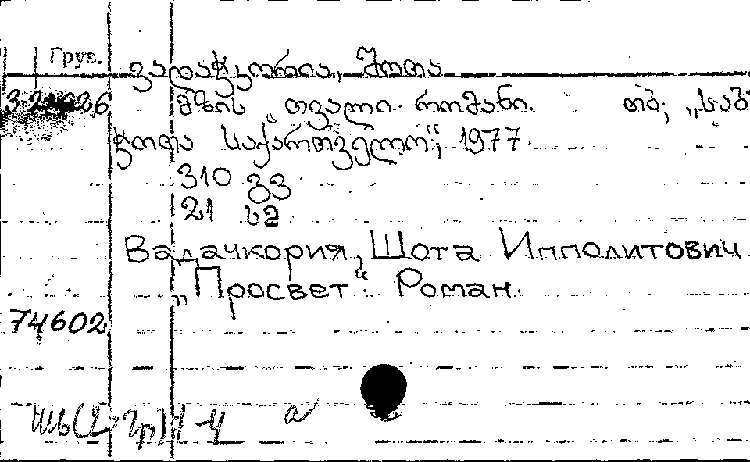 Груз.
ვადაჭკორია, შოთა
მზის „თვალი. რომანი. თბ; „საბ
ჭოთა საქართველო“, 1977
310 გვ
21 სმ
Вадачкория, Шота Ипполитович
„Просвет“. Роман.
74602